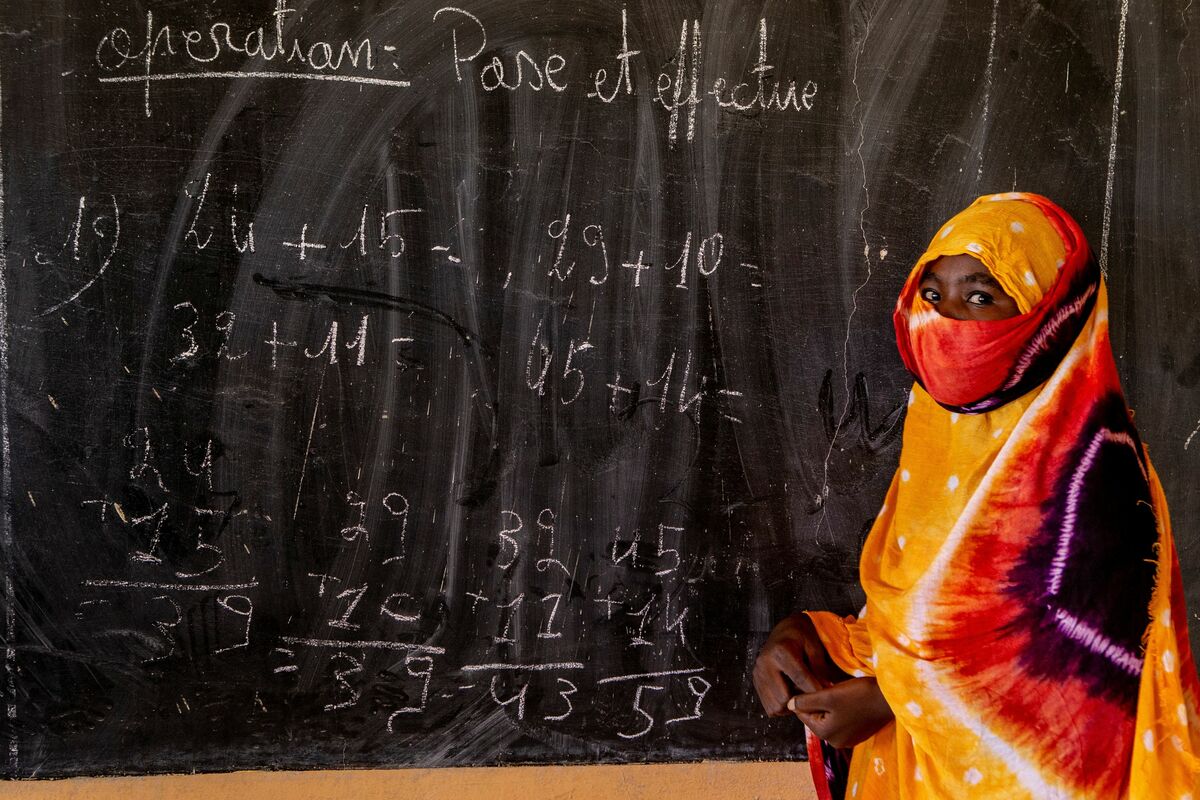 operation: Pose et effectue
1) 24 + 15 = , 29 + 10 =
32 + 11 = 45 + 14 =
24 29 32 45
+ 15 + 10 + 11 + 14
= 39 = 39 - 43 59